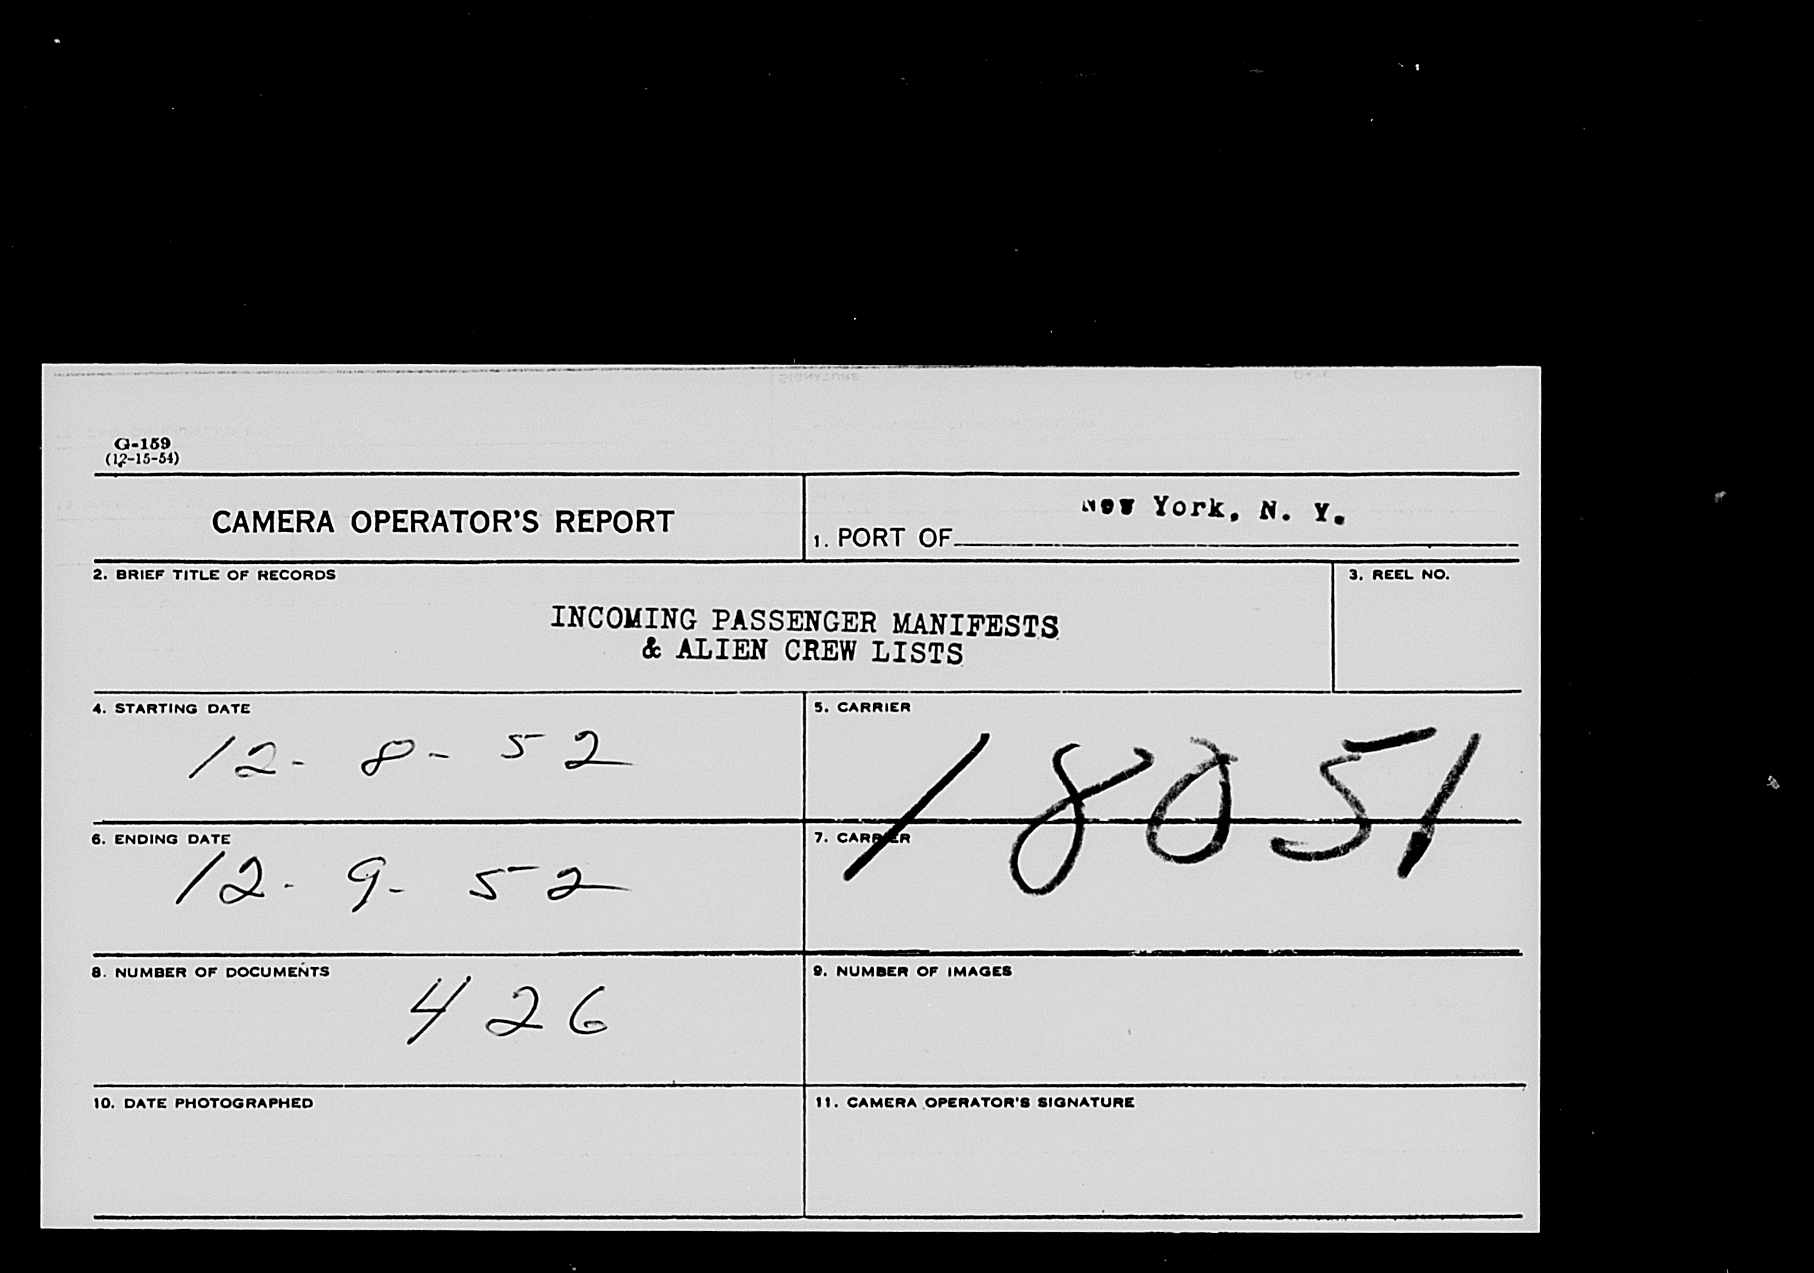 G-159
(12-15-54)
CAMERA OPERATOR'S REPORT
1. PORT OF New York, N. Y.
2. BRIEF TITLE OF RECORDS
INCOMING PASSENGER MANIFESTS
& ALIEN CREW LISTS
3. REEL NO.
4. STARTING DATE
12-8-52
5. CARRIER
18051
6. ENDING DATE
12-9-52
7. CARRIER
8. NUMBER OF DOCUMENTS
426
9. NUMBER OF IMAGES
10. DATE PHOTOGRAPHED
11. CAMERA OPERATOR'S SIGNATURE